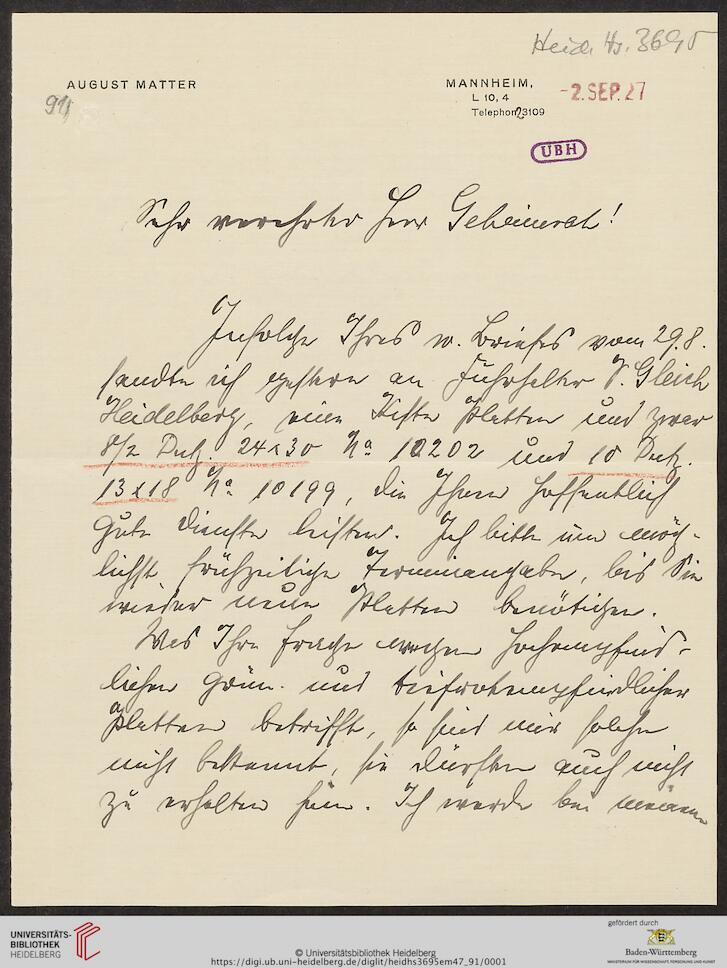 Heid. Hs. 3695
AUGUST MATTER
91
MANNHEIM,
L 10, 4
Telephon 23109
-2. SEP. 27
UBH
Sehr verehrter Herr Geheimrat!
Infolge Ihres w. Briefes vom 29.8.
sandte ich gestern an Fuhrhalter V. Gleich
Heidelberg, eine Kiste Platten und zwar
8 1/2 Dutz. 24x30 No 10202 und 10 Dutz.
13x18 No 10199, die Ihnen hoffentlich
gute Dienste leisten. Ich bitte um mög-
lichst frühzeitige Terminangabe, bis Sie
wieder neue Platten benötigen.
Was Ihre Frage wegen hochempfind-
lichen grün- und tiefrotempfindlicher
Platten betrifft, so sind mir solche
nicht bekannt, sie dürften auch nicht
zu erhalten sein. Ich werde bei meinem
UNIVERSITÄTS-
BIBLIOTHEK
HEIDELBERG
© Universitätsbibliothek Heidelberg
https://digi.ub.uni-heidelberg.de/diglit/heidhs3695em47_91/0001
gefördert durch
Baden-Württemberg
MINISTERIUM FÜR WISSENSCHAFT, FORSCHUNG UND KUNST